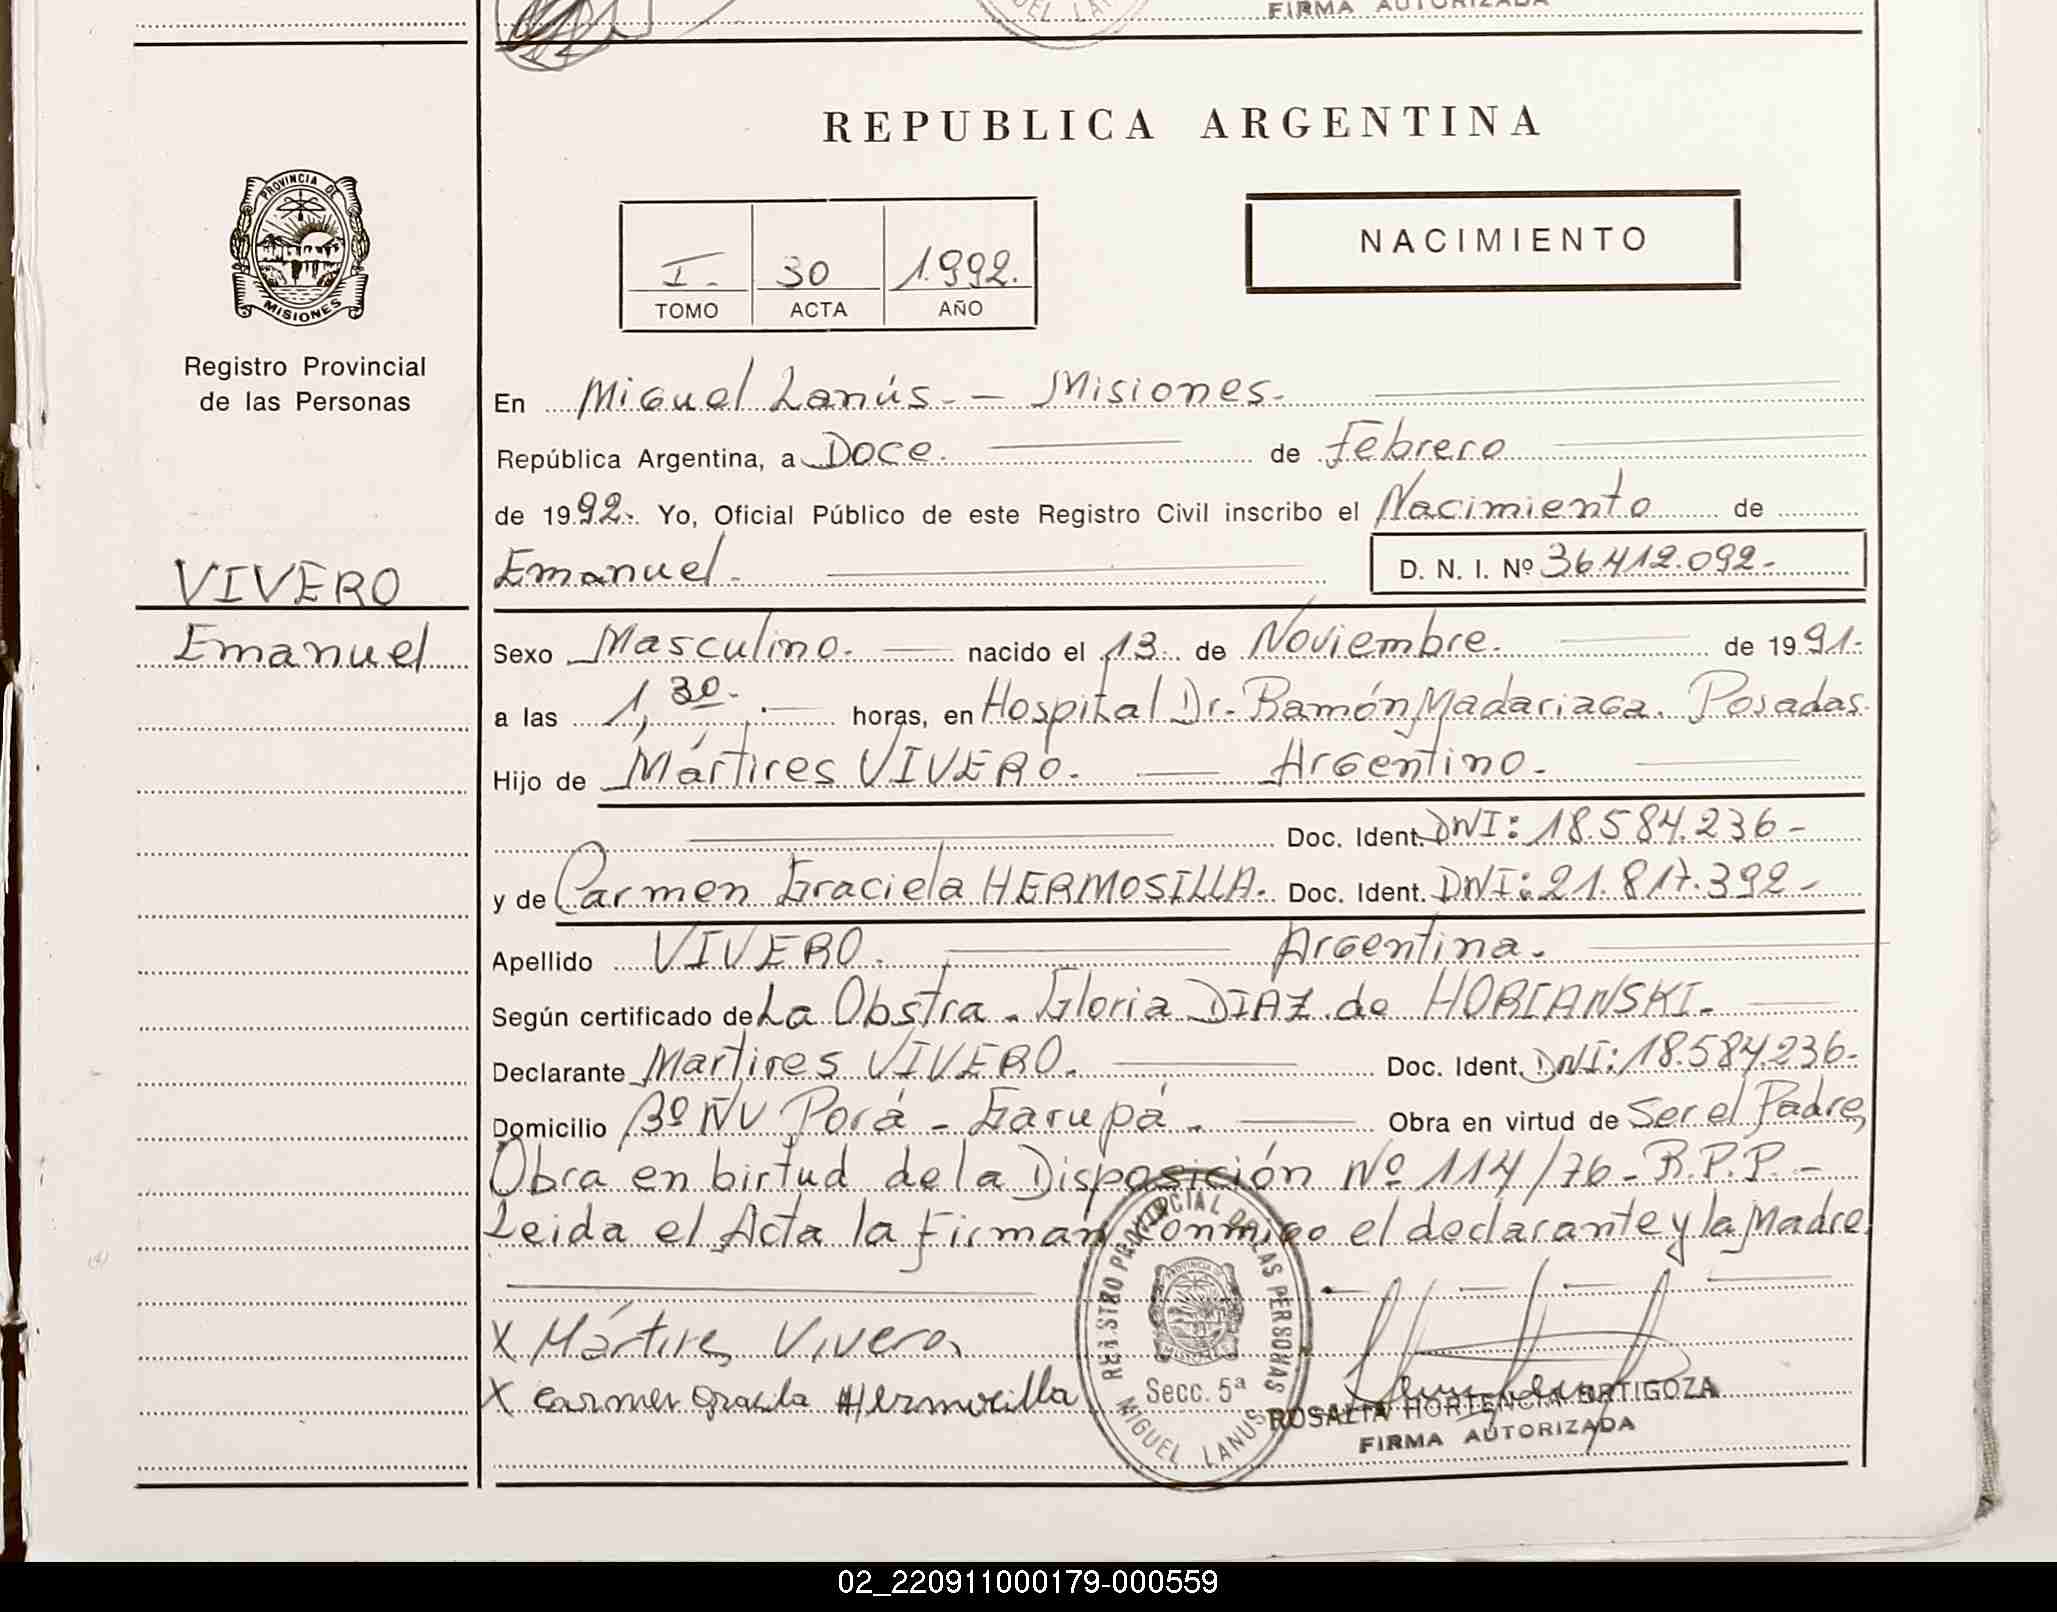 FIRMA AUTORIZADA
REPUBLICA ARGENTINA
PROVINCIA DE
MISIONES
Registro Provincial
de las Personas
I. 30 1.992.
TOMO ACTA AÑO
NACIMIENTO
En Miguel Lanús. - Misiones.
República Argentina, a Doce. de Febrero
de 1992. Yo, Oficial Público de este Registro Civil inscribo el Nacimiento de
VIVERO
Emanuel. D. N. I. Nº 36.412.092.-
Emanuel
Sexo Masculino. nacido el 13 de Noviembre. de 1991.
a las 1,30. horas, en Hospital Dr. Ramón Madariaga. Posadas.
Hijo de Mártires VIVERO. Argentino.
Doc. Ident. DNI: 18.584.236-
y de Carmen Graciela HERMOSILLA. Doc. Ident. DNI: 21.817.392-
Apellido VIVERO. Argentina.
Según certificado de La Obstra. Gloria DIAZ de HORIANSKI.
Declarante Martires VIVERO. Doc. Ident. DNI: 18.584.236-
Domicilio Bº ÑU Porá - Garupá. Obra en virtud de Ser el Padre,
Obra en birtud de la Disposición Nº 114/76-R.P.P.-
Leida el Acta la Firman Conmigo el declarante y la Madre.
X Mártires Vivero
X Carmen Graciela Hermosilla
REGISTRO PROVINCIAL DE LAS PERSONAS
Secc. 5ª
MIGUEL LANUS
ROSALIA HORTENCIA ORTIGOZA
FIRMA AUTORIZADA
02_220911000179-000559